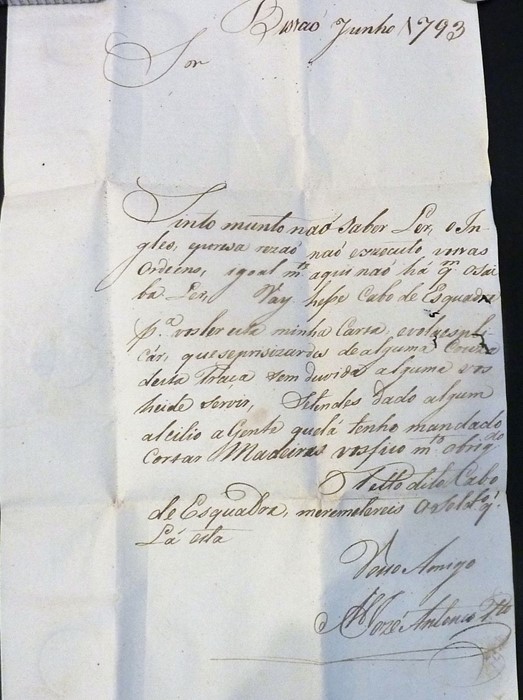 Bissáo Junho 1793
Sor
Sinto munto naõ Saber Ler, o In-
gles, q rezaõ naõ executo vosas
Ordens, igoal mte aqui naõ há qm o sai
ba Ler, Vay hesse Cabo de Esquadra
pa vos ler esta minha Carta, e vola espli-
cár, que se de alguma Couza
desta Praça sem duvida alguma vos
heide servir, Setendes dado algum
alcilio a Gente que lá tenho mandado
Cortar Madeiras vosfico mto obrigdo
Pello dito Cabo
de Esquadra, meremetereis o Soldo q
Lá esta
Vosso Amigo
Joze Antonio Pto